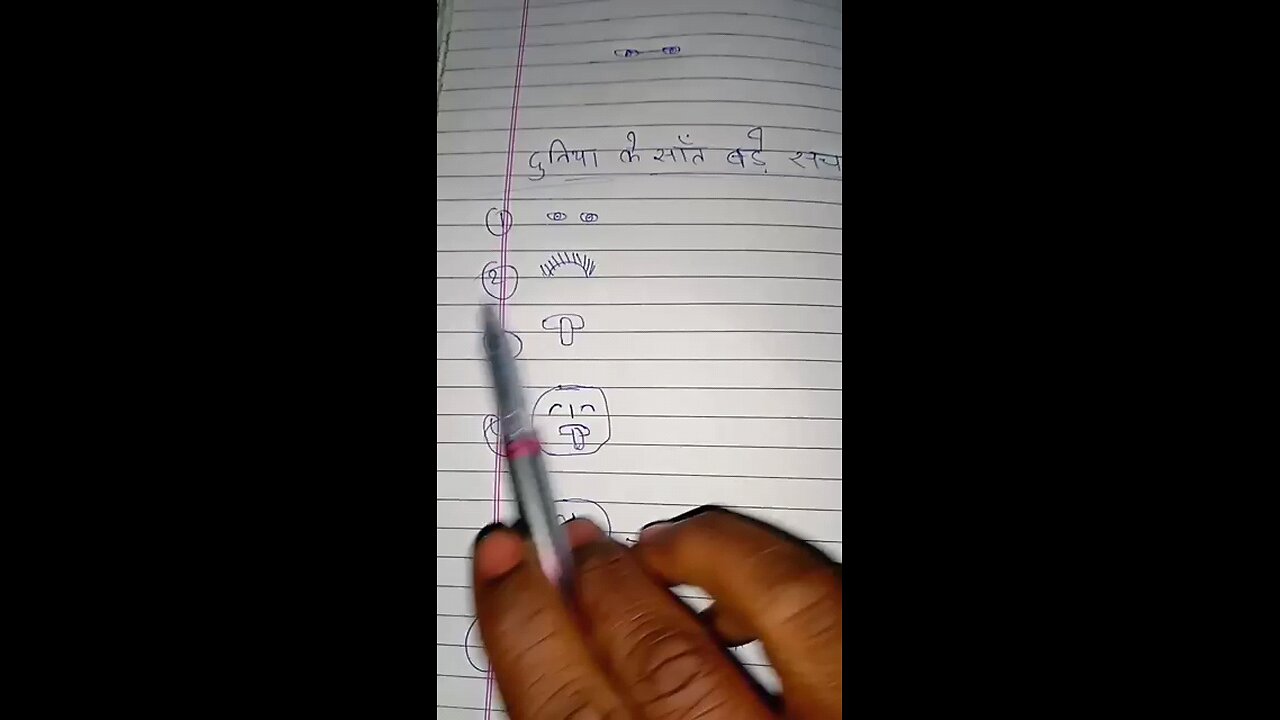 दुनिया के साँत बड़े सच
1
2